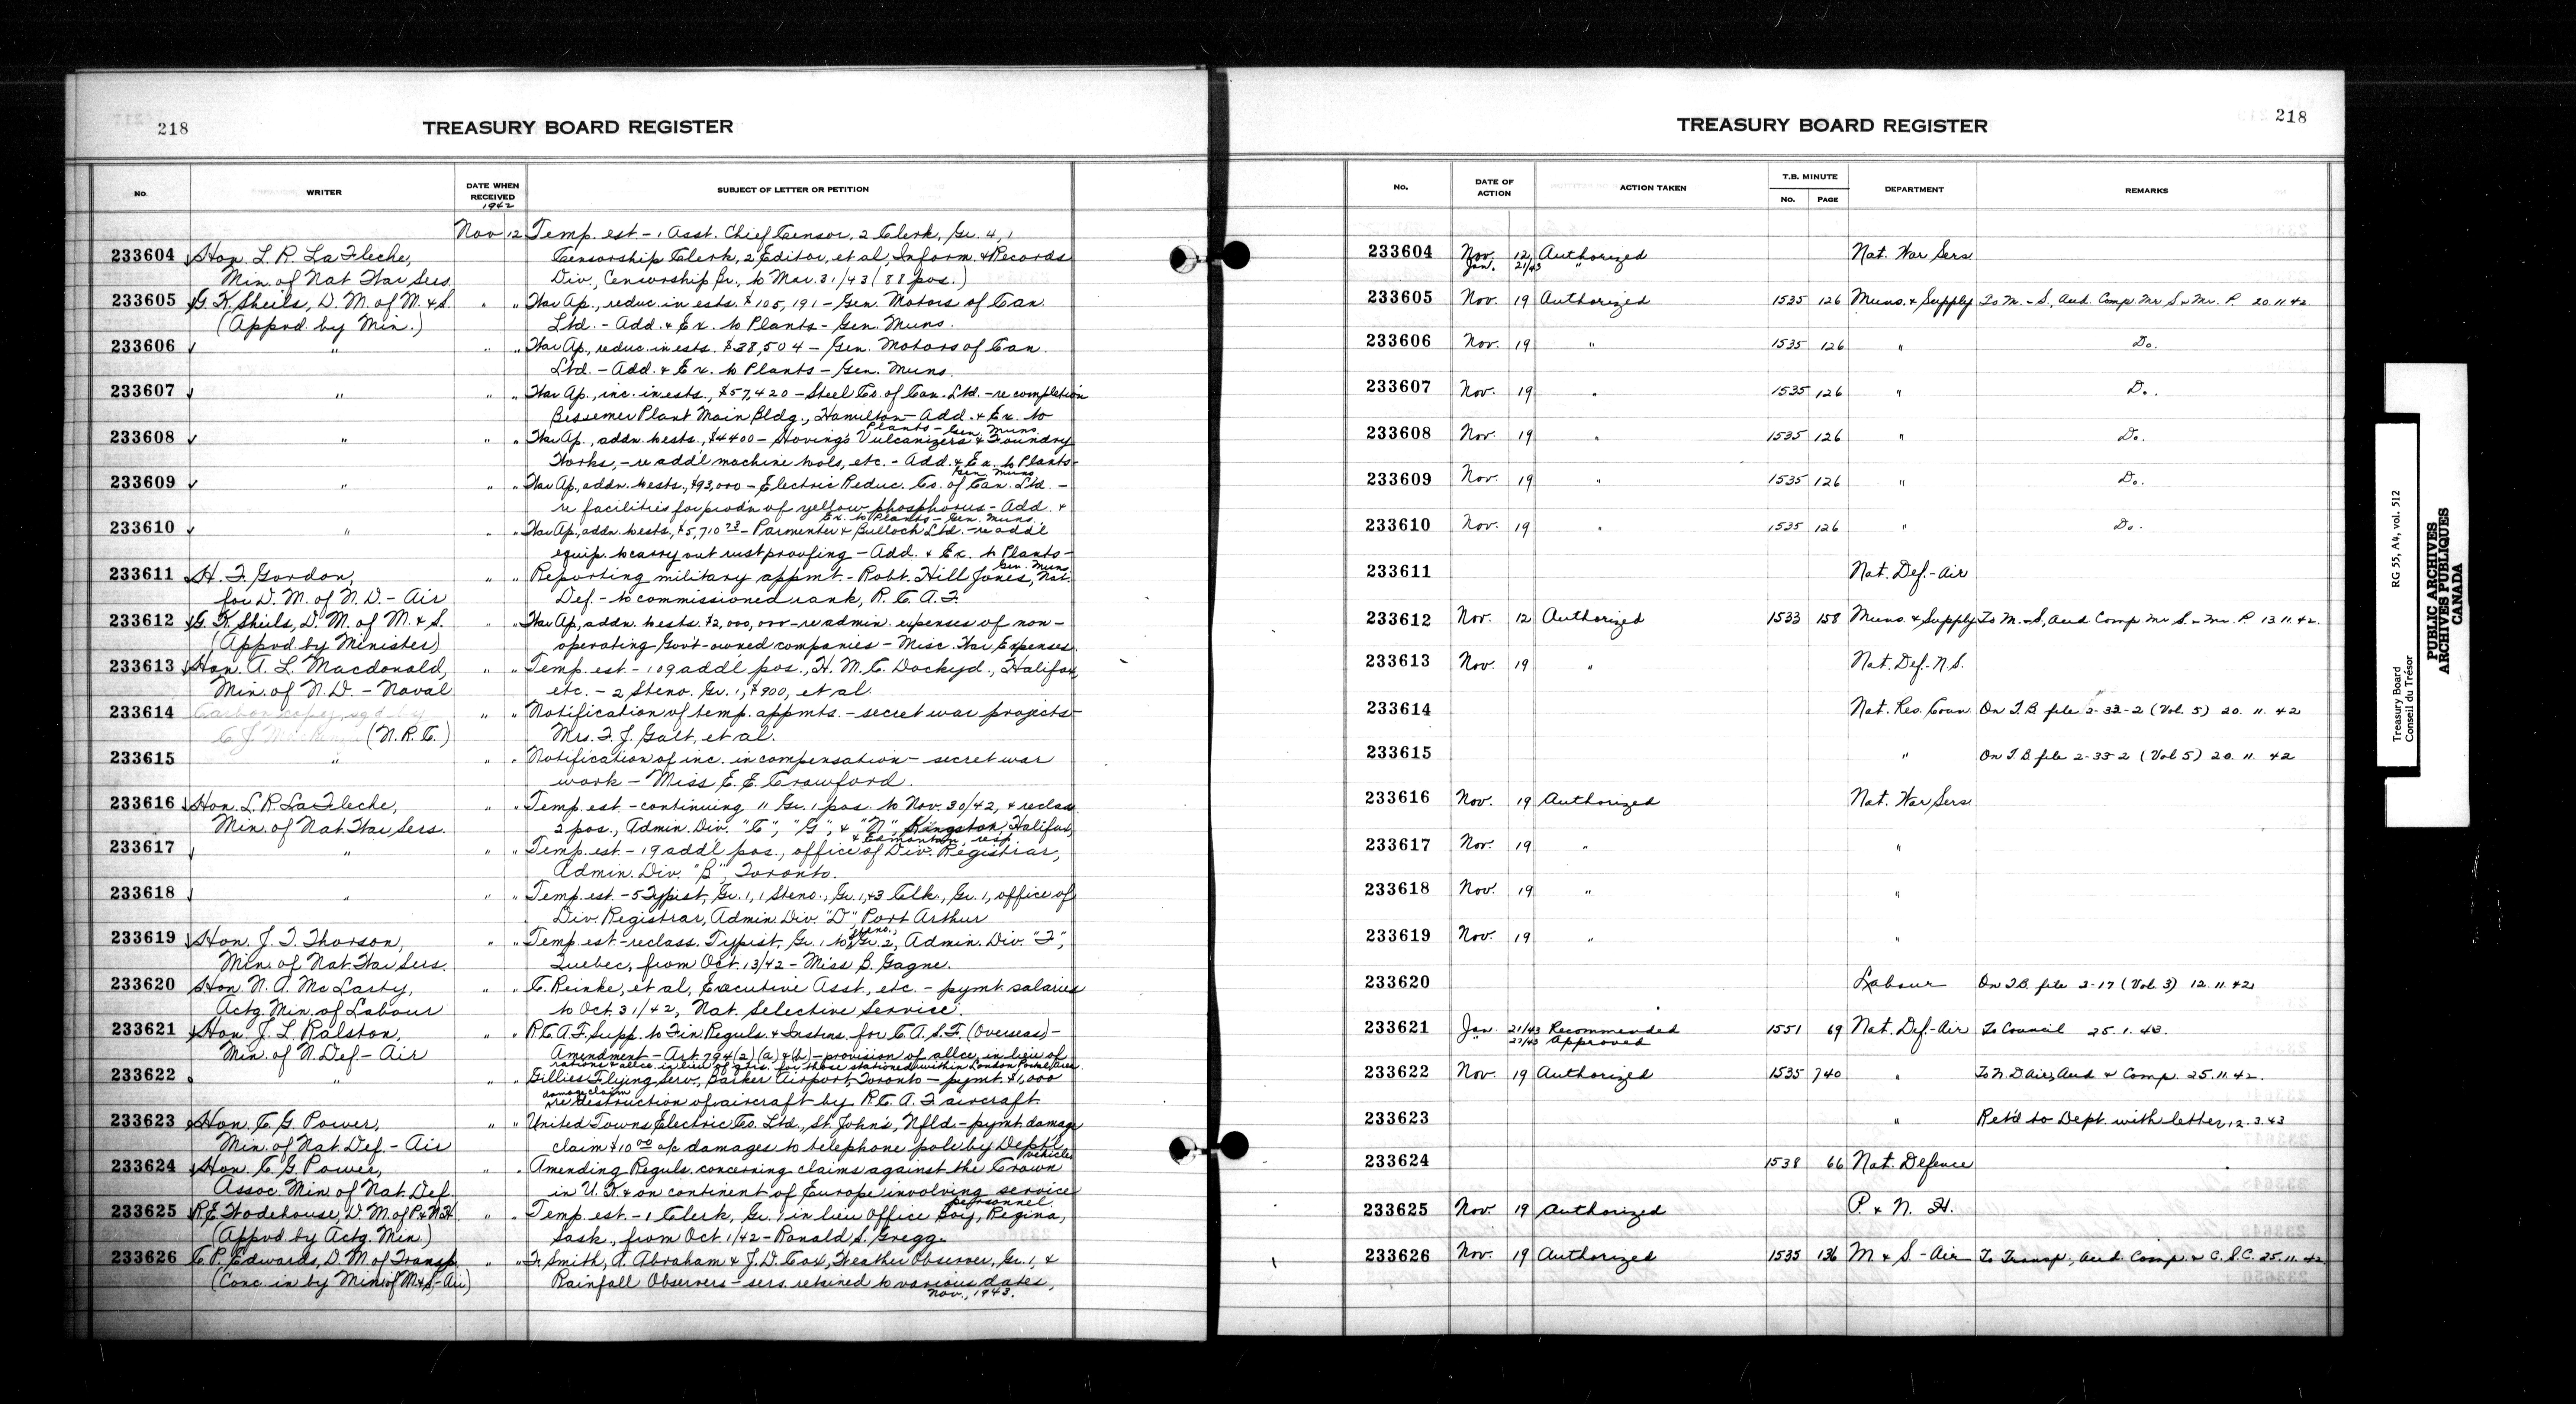 218
TREASURY BOARD REGISTER
No.
WRITER
DATE WHEN RECEIVED
1942
SUBJECT OF LETTER OR PETITION
Nov 12 Temp. est. - 1 Asst. Chief Censor, 2 Clerk, Gr. 4, 1
233604 Hon. L. R. LaFleche, Censorship Clerk, 2 Editor, et al, Inform. & Records
Min. of Nat. War Sers. Div., Censorship Br., to Mar. 31/43 (88 pos.)
233605 G. K. Sheils, D. M. of M. & S. " " War Ap., reduc. in ests. $105,191 - Gen. Motors of Can.
(Apprvd by Min.) Ltd. - Add. & Ex. to Plants - Gen. Muns.
233606 " " " War Ap., reduc. in ests. $38,504 - Gen. Motors of Can.
Ltd. - Add. & Ex. to Plants - Gen. Muns.
233607 " " " War Ap., inc. in ests., $57,420 - Steel Co. of Can. Ltd. - re completion
Bessemer Plant Main Bldg., Hamilton - Add. & Ex. to
Plants - Gen. Muns.
233608 " " " War Ap., addn. to ests., $4400 - Hoving's Vulcanizers & Foundry
Works, - re add'l machine tools, etc. - Add. & Ex. to Plants -
Gen. Muns
233609 " " " War Ap., addn. to ests., $93,000 - Electric Reduc. Co. of Can. Ltd. -
re facilities for prodn of yellow phosphorus - Add. &
Ex. to Plants - Gen. Muns.
233610 " " " War Ap., addn. to ests., $5,710 - Parmenter & Bulloch Ltd. - re add'l
equip. to carry out rustproofing - Add. & Ex. to Plants -
Gen. Muns
233611 H. F. Gordon, " " Reporting military appmt. - Robt. Hill Jones, Nat.
for D. M. of N. D. - Air Def. - to commissioned rank, R. C. A. F.
233612 G. K. Sheils, D. M. of M. & S. " " War Ap., addn. to ests. $2,000,000 - re admin. expenses of non-
(Apprvd by Minister) operating Gov't-owned companies - Misc. War Expenses.
233613 Hon. A. L. Macdonald, " " Temp. est. - 109 add'l pos., H. M. C. Dockyd., Halifax,
Min. of N. D. - Naval etc. - 2 Steno. Gr. 1, $900, et al.
233614 Carbon copy, sgd by " " Notification of temp. appmts. - secret war projects -
C. J. (N. R. C.) Mrs. F. J. Galt, et al.
233615 " " " Notification of inc. in compensation - secret war
work - Miss E. E. Crawford.
233616 Hon. L. R. LaFleche, " " Temp. est. - continuing 11 Gr. 1 pos. to Nov. 30/42, & reclass.
Min. of Nat. War Sers. 2 pos., Admin. Div. "C", "G", & "N", Kingston, Halifax,
& Edmonton, resp.
233617 " " " Temp. est. - 19 add'l pos., office of Div. Registrar,
Admin. Div. "B", Toronto.
233618 " " " Temp. est. - 5 Typist, Gr. 1, 1 Steno., Gr. 1, & 3 Clk., Gr. 1, office of
Div. Registrar, Admin. Div. "D" Port Arthur
233619 Hon. J. T. Thorson, " " Temp. est. - reclass. Typist, Gr. 1 to Steno., Gr. 2, Admin. Div. "F",
Min. of Nat. War Sers. Quebec, from Oct. 13/42 - Miss B. Gagne.
233620 Hon. N. A. McLarty, " " C. Reinke, et al, Executive Asst., etc. - pymt. salaries
Actg. Min. of Labour to Oct. 31/42, Nat. Selective Service.
233621 Hon. J. L. Ralston, " " R. C. A. F. Supp. to Fin. Reguls. & Instns. for C. A. S. F. (Overseas) -
Min. of N. Def - Air Amendment - Art. 794 (2) (a) & (b) - provision of allce. in lieu of
rations & allce. in lieu of qtrs. for those stationed within London Postal Area.
233622 " " " Gillies Flying Serv., Barker Airport, Toronto - pymt. $1,000
damage claim
re destruction of aircraft by R. C. A. F. aircraft.
233623 Hon. C. G. Power, " " United Towns Electric Co. Ltd., St. John's, Nfld. - pymt. damage
Min. of Nat. Def. - Air claim $10.00 a/c damages to telephone pole by Dept'l.
vehicle
233624 Hon. C. G. Power, " " Amending Reguls. concerning claims against the Crown
Assoc. Min. of Nat. Def. in U. K. & on continent of Europe involving service
personnel.
233625 R. E. Wodehouse, D. M. of P. & N. H. " " Temp. est. - 1 Clerk, Gr. 1 in lieu Office Boy, Regina,
(Apprvd by Actg. Min.) Sask., from Oct. 1/42 - Ronald S. Gregg.
233626 C. P. Edwards, D. M. of Transp. " " F. Smith, A. Abraham & J. D. Cox, Weather Observer, Gr. 1, &
(Conc. in by Min. of M. & S. - Air) Rainfall Observers - sers. retained to various dates,
Nov., 1943.
218
TREASURY BOARD REGISTER
No.
DATE OF ACTION
ACTION TAKEN
T.B. MINUTE
No.
PAGE
DEPARTMENT
REMARKS
233604 Nov. 12 Authorized Nat. War Sers.
Jan. 21/43 "
233605 Nov. 19 Authorized 1535 126 Muns. & Supply To M. & S., Aud. Comp. Mr S. & Mr. P. 20.11.42
233606 Nov. 19 " 1535 126 " Do.
233607 Nov. 19 " 1535 126 " Do.
233608 Nov. 19 " 1535 126 " Do.
233609 Nov. 19 " 1535 126 " Do.
233610 Nov. 19 " 1535 126 " Do.
233611 Nat. Def. - Air
233612 Nov. 12 Authorized 1533 158 Muns. & Supply To M. & S., Aud. Comp. Mr S. & Mr. P. 13.11.42.
233613 Nov. 19 " Nat. Def. - N.S.
233614 Nat. Res. Coun. On T.B. file 2-33-2 (Vol. 5) 20. 11. 42
233615 " On T.B. file 2-33-2 (Vol 5) 20. 11. 42
233616 Nov. 19 Authorized Nat. War Sers.
233617 Nov. 19 " "
233618 Nov. 19 " "
233619 Nov. 19 " "
233620 Labour On T.B. file 2-17 (Vol. 3) 12. 11. 42
233621 Jan. 21/43 Recommended 1551 69 Nat. Def. - Air To Council 25. 1. 43.
" 27/43 Approved
233622 Nov. 19 Authorized 1535 740 " To N. D. Air, Aud. & Comp. 25. 11. 42.
233623 " Ret'd to Dept. with letter, 12. 3. 43
233624 1538 66 Nat. Defence
233625 Nov. 19 Authorized P. & N. H.
233626 Nov. 19 Authorized 1535 136 M & S - Air To Transp., Aud. Comp. & C. S. C. 25.11.42
Treasury Board
Conseil du Trésor
RG 55, A4, vol. 512
PUBLIC ARCHIVES
ARCHIVES PUBLIQUES
CANADA